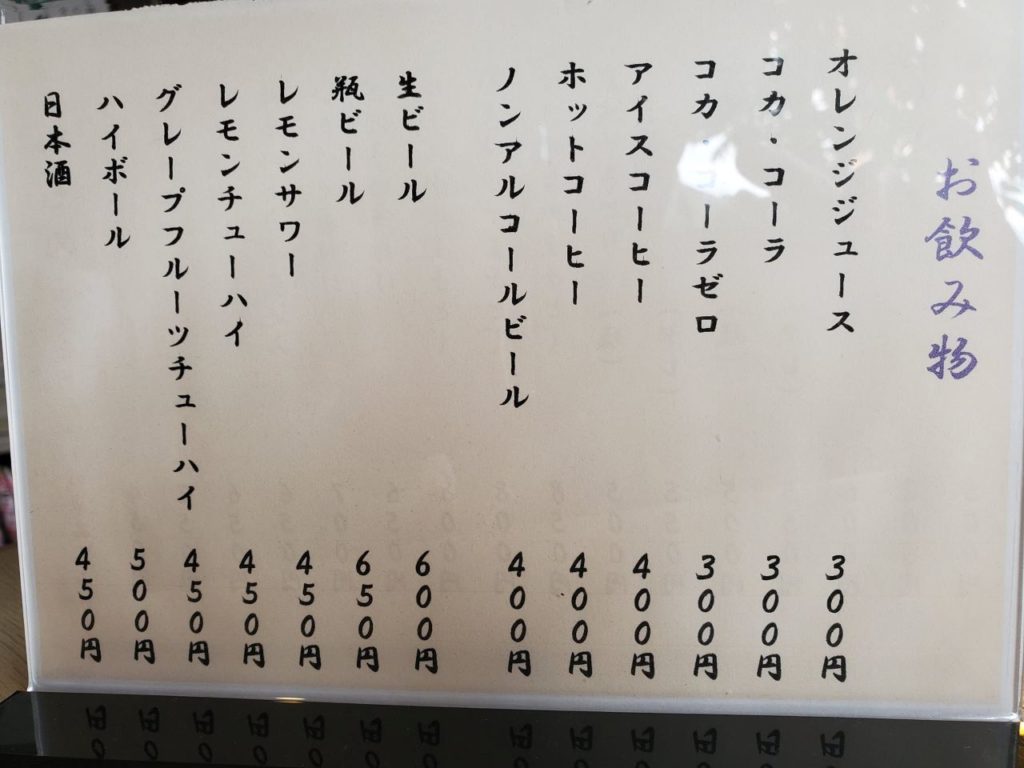 お飲み物
オレンジジュース 300円
コカ・コーラ 300円
コカ・コーラゼロ 300円
アイスコーヒー 400円
ホットコーヒー 400円
ノンアルコールビール 400円
生ビール 600円
瓶ビール 650円
レモンサワー 450円
レモンチューハイ 450円
グレープフルーツチューハイ 450円
ハイボール 500円
日本酒 450円